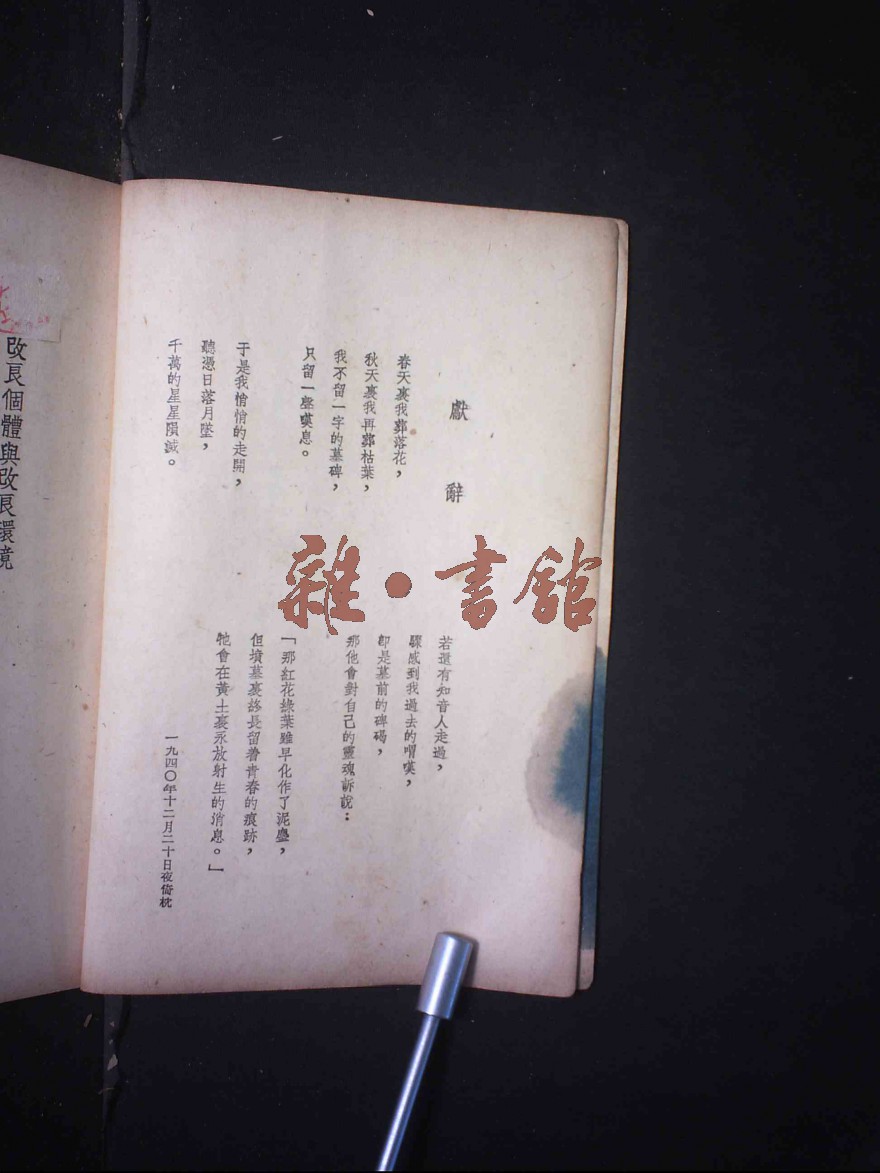 獻辭
春天裏我葬落花，
秋天裏我再葬枯葉，
我不留一字的墓碑，
只留一聲嘆息。
于是我悄悄的走開，
聽憑日落月墜，
千萬的星星隕滅。
若還有知音人走過，
驟感到我過去的喟嘆，
卽是墓前的碑碣，
那他會對自己的靈魂訴說：
「那紅花綠葉雖早化作了泥塵，
但墳墓裏終長留着青春的痕跡，
牠會在黃土裏永放射生的消息。」
一九四〇年十二月二十日夜倚枕
改良個體與改良環境
雜·書館